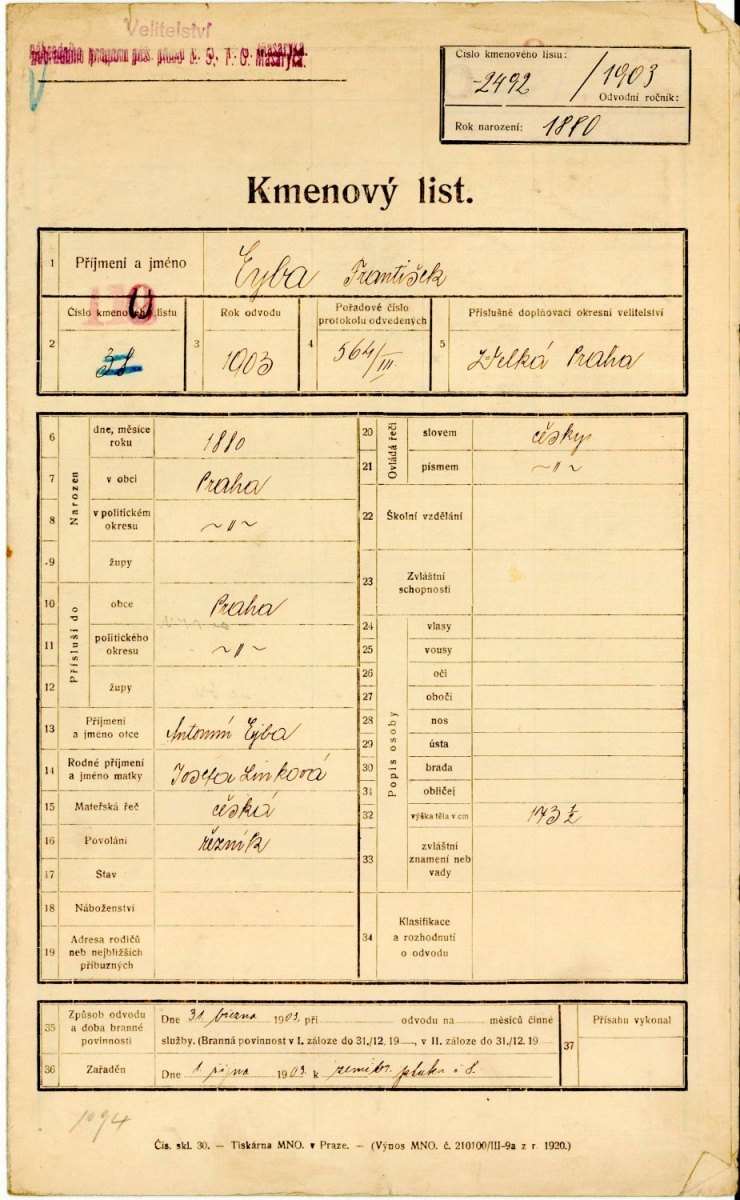 Velitelství
náhradního praporu pěš. pluku č. 5, T. G. Masaryka.
Číslo kmenového listu:
2492 / 1903
Odvodní ročník:
Rok narození: 1880
Kmenový list.
1 Příjmení a jméno Eyba František
2 Číslo kmenového listu 38
3 Rok odvodu 1903
4 Pořadové číslo protokolu odvedených 564/III.
5 Příslušné doplňovací okresní velitelství Velká Praha
Narozen
6 dne, měsíce roku 1880
7 v obci Praha
8 v politickém okresu ~ " ~
9 župy
Přísluší do
10 obce Praha
11 politického okresu ~ " ~
12 župy
13 Příjmení a jméno otce Antonín Ejba
14 Rodné příjmení a jméno matky Josefa Linková
15 Mateřská řeč česká
16 Povolání řezník
17 Stav
18 Náboženství
19 Adresa rodičů neb nejbližších příbuzných
Ovládá řeči
20 slovem česky
21 písmem ~ " ~
22 Školní vzdělání
23 Zvláštní schopnosti
Popis osoby
24 vlasy
25 vousy
26 oči
27 obočí
28 nos
29 ústa
30 brada
31 obličej
32 výška těla v cm 173 ½
33 zvláštní znamení neb vady
34 Klasifikace a rozhodnutí o odvodu
35 Způsob odvodu a doba branné povinnosti
Dne 31. března 1903. při odvodu na měsíců činné
služby. (Branná povinnost v I. záloze do 31./12. 19 , v II. záloze do 31./12. 19
36 Zařaděn Dne 1. října 1903. k zeměbr. pluku č 8.
37 Přísahu vykonal
1094
Čís. skl. 30. — Tiskárna MNO. v Praze. — (Výnos MNO. č. 210100/III-9a z r. 1920.)